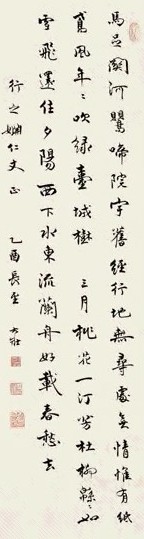 馬足關河鶯啼院宇舊經行地無尋處多情惟有紙
鳶風年年吹綠臺城樹　三月桃花一汀芳杜柳緜緜如
雪飛還住夕陽西下水東流蘭舟好載春愁去
行之嫻仁丈正　乙酉長至　大壯